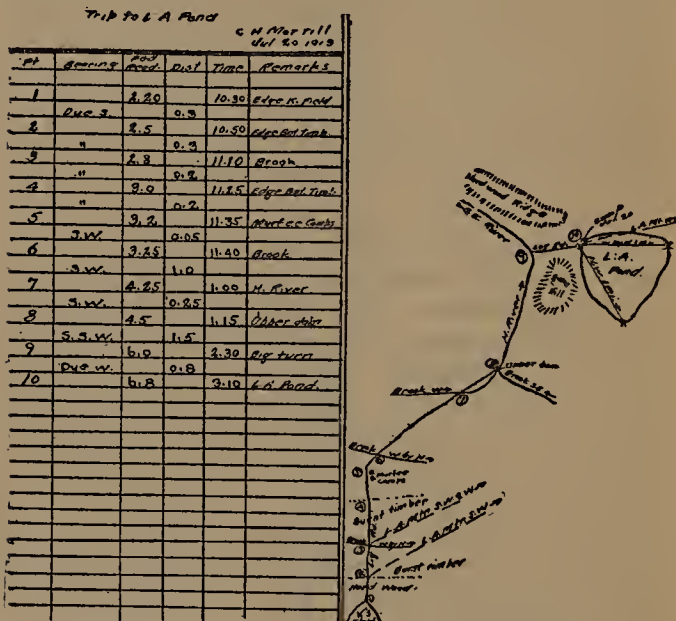 Trip to L A Pond
C H Morrill
Jul 20 1913
Pt Bearing Ped Reed. Dist Time Remarks
1 2.20 10.30 Edge K. Field
Due S. 0.3
2 2.5 10.50 Edge Bnt Timb.
" 0.3
3 2.8 11.10 Brook
" 0.2
4 3.0 11.25 Edge Bnt. Timb.
" 0.2
5 3.2 11.35 Camps
S.W. 0.05
6 3.25 11.40 Brook
S.W. 1.0
7 4.25 1.00 N. River
S.W. 0.25
8 4.5 1.15 Upper dam
S.S.W. 1.5
9 6.0 2.30 Big turn
Due W. 0.8
10 6.8 3.10 L A Pond.
Hard wood Ridge
River
camp
Jul 20
L.A.
Pond.
N. River
Upper dam
Brook
Brook
Brook
camps
Burnt timber
L.A. Mtn S.W.
Burnt timber
Hard wood.